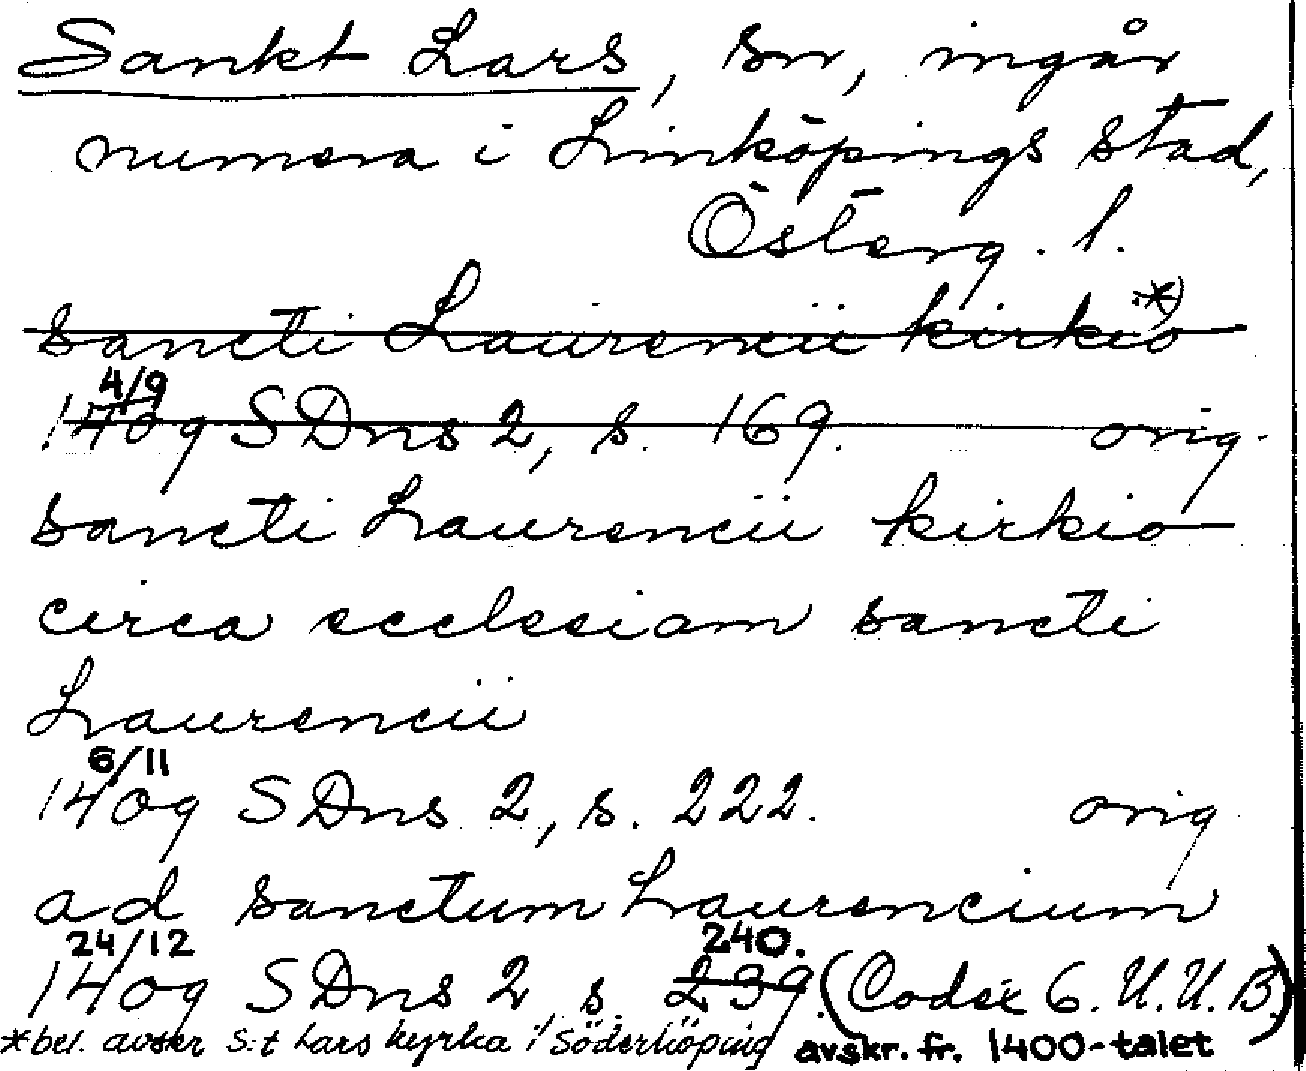 Sankt Lars, sn, ingår
numera i Linköpings stad,
Österg. l.
sancti Laurencii kirkio *)
4/9
1409 SDns 2, s. 169. orig.
sancti Laurencii kirkio
circa ecclesiam sancti
Laurencii
6/11
1409 SDns 2, s. 222. orig
ad sanctum Laurencium
24/12 240.
1409 SDns 2 s. 239. (Codex 6. U.U.B.)
*bel. avser S:t Lars kyrka i Söderköping avskr. fr. 1400-talet